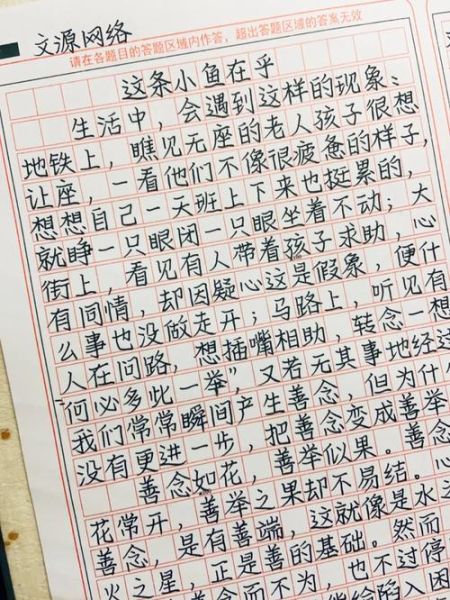 文源网络
请在各题目的答题区域内作答，超出答题区域的答案无效
这条小鱼在乎
生活中，会遇到这样的现象：
地铁上，瞧见无座的老人孩子很想
让座，一看他们不像很疲惫的样子，
想想自己一天班上下来也挺累的，
就睁一只眼闭一只眼坐着不动；大
街上，看见有人带着孩子求助，心
有同情，却因疑心这是假象，便什
么事也没做走开；马路上，听见有
人在问路，想插嘴相助，转念一想
何必多此一举"，又若无其事地经过
我们常常瞬间产生善念，但为什
没有更进一步，把善念变成善举
善念如花，善举似果。善念
花常开，善举之果却不易结。心
善念，是有善端，这就像是水之
火之星，正是善的基础。然而
善念而不为，也不过停
能给陷入困